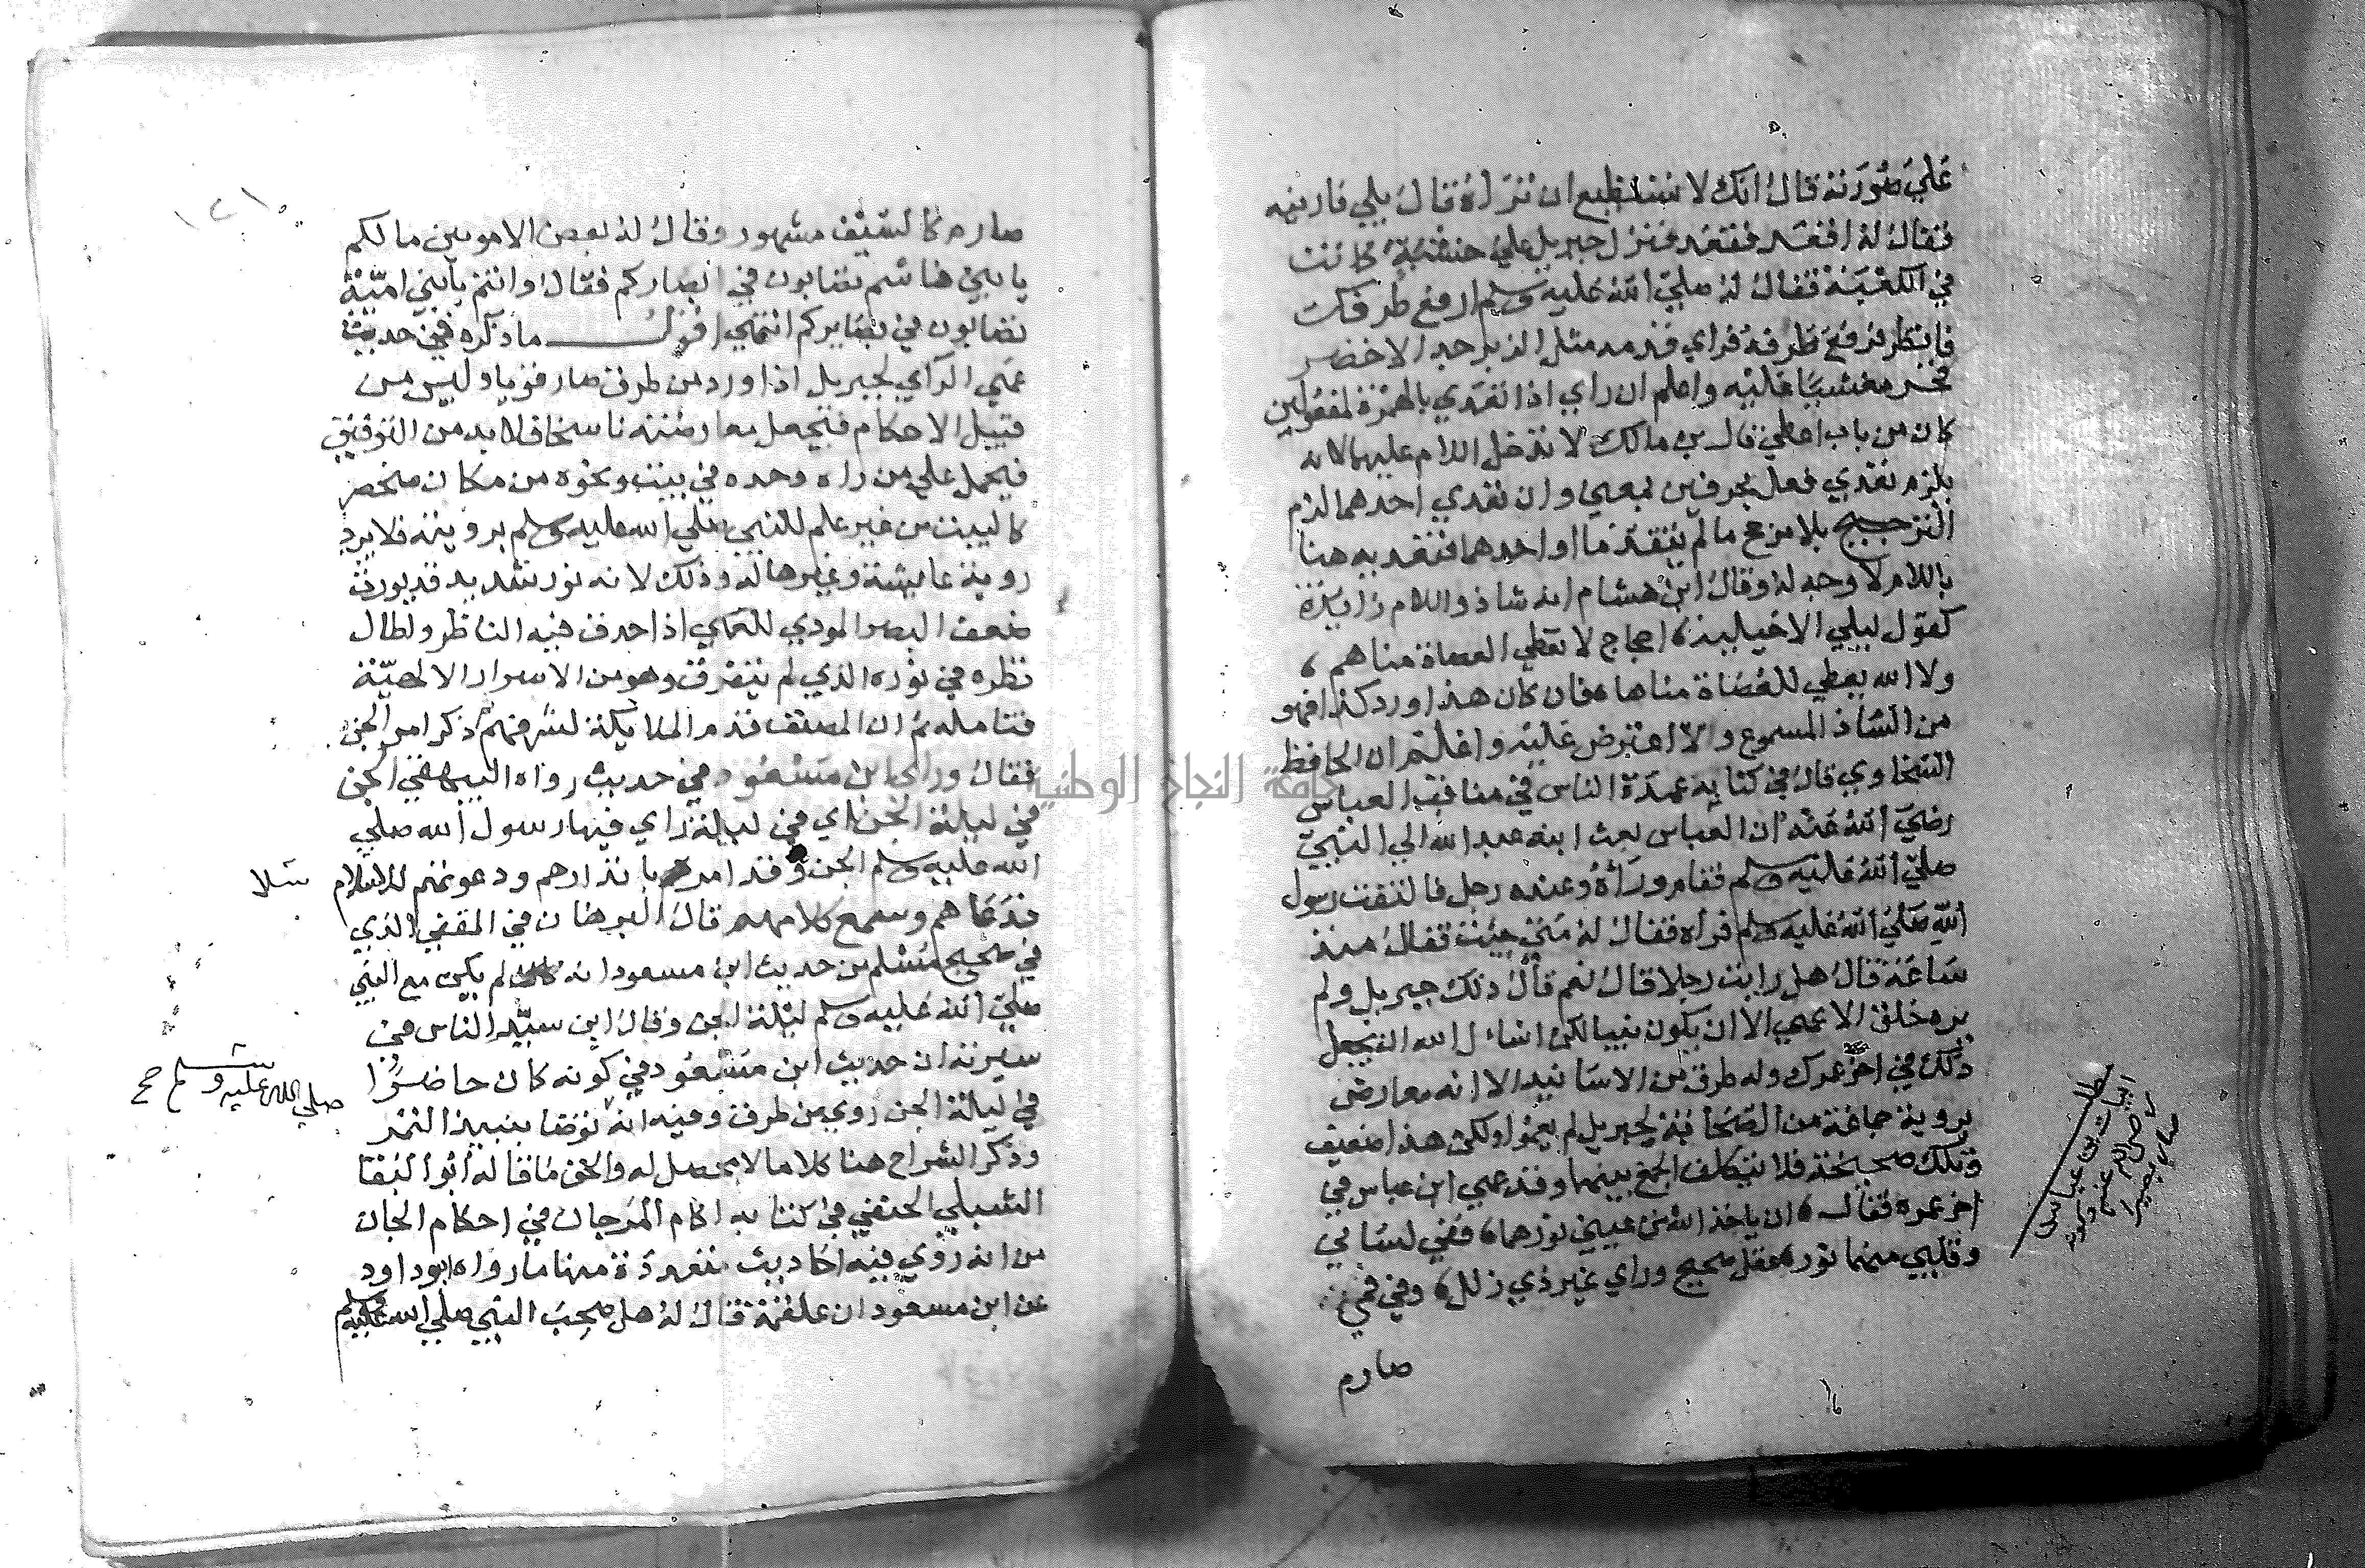 علي صورته قال انك لا تستطيع ان تراه قال بلي فارنيه
فقال له اقعد فقعد فنزل جبريل علي خشبة كانت
في الكعبة فقال له صلي الله عليه وسلم ارفع طرفك
فانظر فرفع طرفه فراي قدمه مثل الزبرجد الاخضر
فخر مغشيا عليه واعلم ان راي اذا تعدي بالهمزة لمفعولين
كان من باب اعطي قال بن مالك لا تدخل اللام عليهما لانه
يلزم تعدي فعل بحرفين بمعني وان تعدي احدهما لزم
الترجيح بلا مرجح مالم يتقدما او احدهما فتعديه هنا
باللام لا وجه له وقال ابن هشام انه شاذ واللام زايدة
كقول ليلي الاخيلية، احجاج لا تعطي العصاة مناهم،
ولا الله يعطي للعصاة مناها، فان كان هذا ورد كذا فهو
من الشاذ المسموع والا اعترض عليه واعلم ان الحافظ
السخاوي قال في كتابه عمدة الناس في مناقب العباس
رضي الله عنه ان العباس بعث ابنه عبد الله الي النبي
صلي الله عليه وسلم فقام وراه وعنده رجل فالتفت رسول
الله صلي الله عليه وسلم فراه فقال له متي جيت فقال منذ
ساعة قال هل رايت رجلا قال نعم قال ذلك جبريل ولم
يره خلق الا عمي الا ان يكون نبيا لكن اسال الله ان يجعل
ذلك في اخر عمرك وله طرق من الاسانيد الا انه معارض
بروية جماعة من الصحابة لجبريل لم يعموا ولكن هذا ضعيف
وتلك صحيحة فلا يتكلف الجمع بينهما وقد عمي ابن عباس في
اخر عمره فقال، ان ياخذ الله من عيني نورهما، ففي لساني
وقلبي منهما نور، عقل صحيح وراي غير ذي زلل، وفي فمي
صارم
ابيات بن عباس
رضي الله عنه
صارم كالسيف مشهور وقال له بعض الامويين مالكم
يا بني هاشم تصابون في ابصاركم فقال وانتم يا بني امية
تصابون في بصايركم انتهي اقول ما ذكره في حديث
عمي الرآي لجبريل اذا ورد من طرق صار قويا وليس من
قبيل الاحكام فتجعل معارضته ناسخا فلا بد من التوفيق
فيحمل علي من راه وحده في بيت ونحوه من مكان منحصر
كالبيت من غير علم للنبي صلي الله عليه وسلم برويته فلا يرد
روية عايشة وغيرها له وذلك لانه نور شديد قد يورث
ضعف البصر المودي للعمي اذا احدق فيه الناظر ولطال
نظره في نوره الذي لم يتفرق وهو من الاسرار الالهية
فتامله ثم ان المصنف قدم الملايكة لشرفهم ذكر امر الجن
فقال وراي ابن مسعود في حديث رواه البيهقي الجن
في ليلة الجن اي في ليلة راي فيها رسول الله صلي
الله عليه وسلم الجن وقد امر بانذارهم ودعوتهم للاسلام
فدعاهم وسمع كلامهم قال البرهان في المقتفي الذي
في صحيح مسلم من حديث ابن مسعود انه لم يكن مع النبي
صلي الله عليه وسلم ليلة الجن وقال ابن سيد الناس في
سيرته ان حديث ابن مسعود في كونه كان حاضرا
صلي الله عليه وسلم صح
في ليلة الجن روي من طرق وفيه انه توضا بنبيذ التمر
وذكر الشراح هنا كلاما لا محصل له والحق ما قاله ابو البقا
الشبلي الحنفي في كتابه اكام المرجان في احكام الجان
من انه روي فيه احاديث متعددة منها ما رواه ابو داود
عن ابن مسعود ان علقمة قال له هل صحب النبي صلي الله عليه وسلم
جامعة النجاح الوطنية